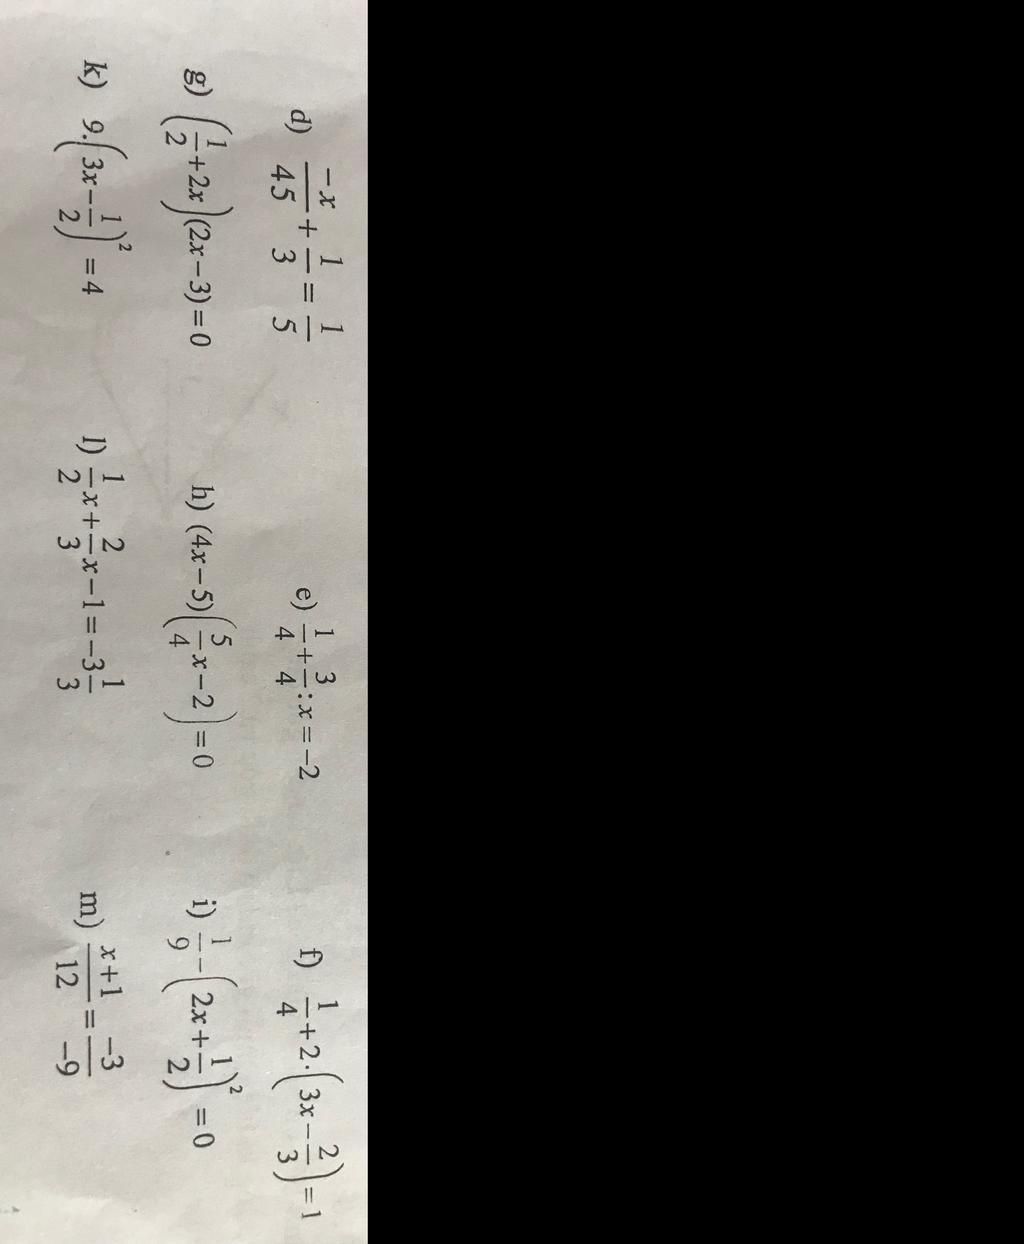 d) \frac{-x}{45}+\frac{1}{3}=\frac{1}{5} e) \frac{1}{4}+\frac{3}{4}:x=-2 f) \frac{1}{4}+2.\left(3x-\frac{2}{3}\right)=1
g) \left(\frac{1}{2}+2x\right)(2x-3)=0 h) (4x-5)\left(\frac{5}{4}x-2\right)=0 i) \frac{1}{9}-\left(2x+\frac{1}{2}\right)^2=0
k) 9.\left(3x-\frac{1}{2}\right)^2=4 l) \frac{1}{2}x+\frac{2}{3}x-1=-3\frac{1}{3} m) \frac{x+1}{12}=\frac{-3}{-9}